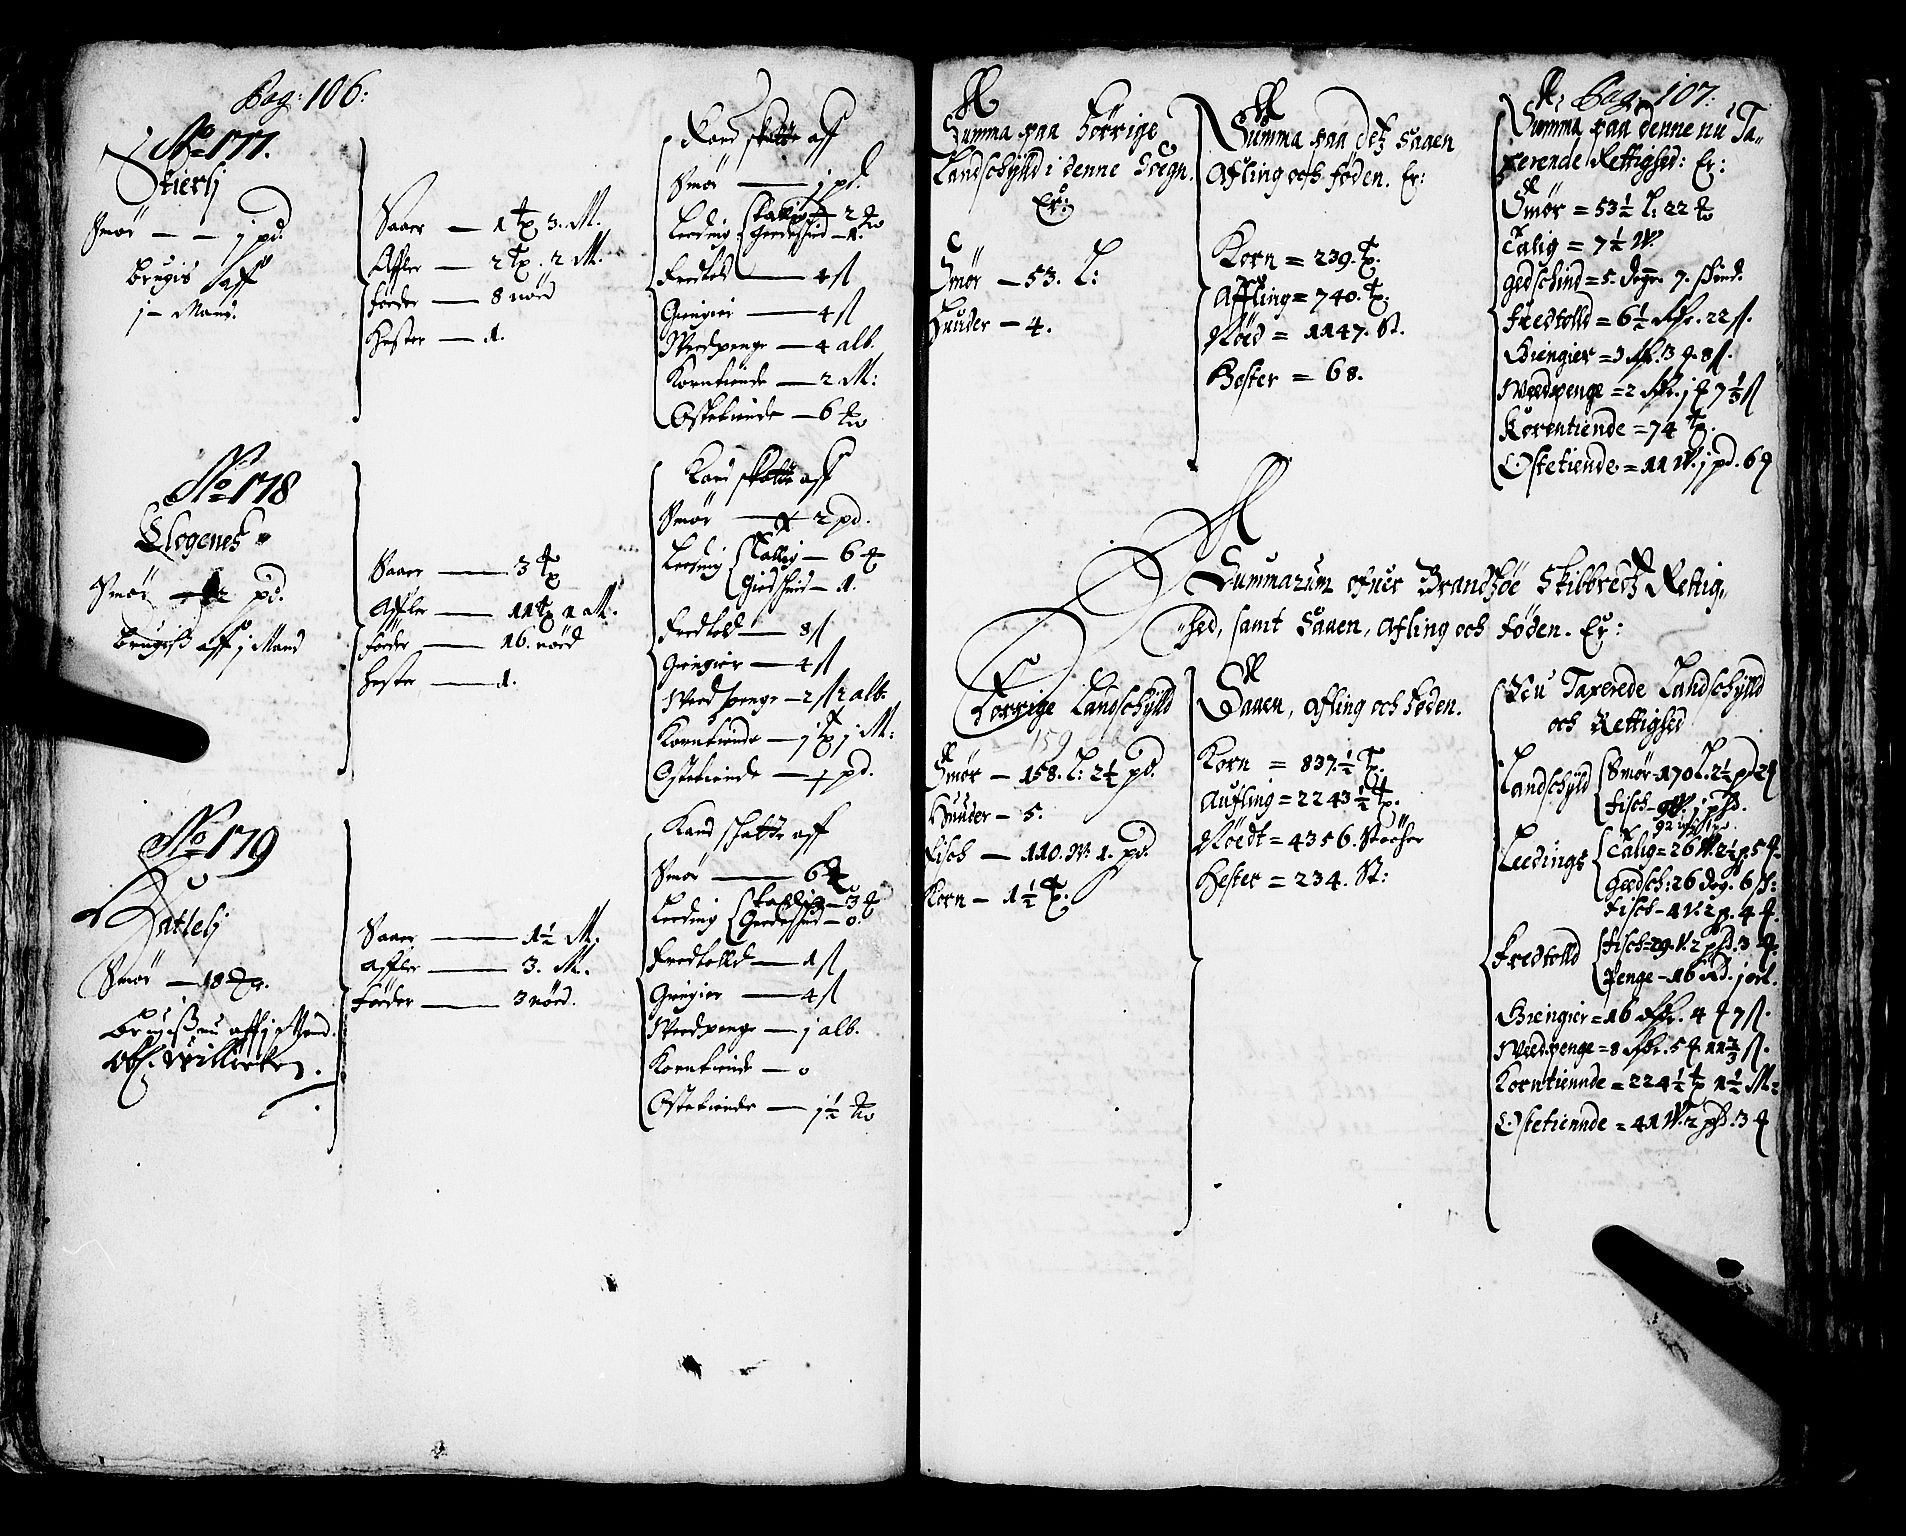 Pag: 106:
No 177.
Skierlj
Smør — j pd.
brugis aff
j — Mand.
Saaer — 1 tp 3. M.
Affler — 2 tp. 2 M.
føder — 8 nød
hester — 1.
Kand skatte aff
Smør — j pd.
Leeding {Tallig — 2
Geedeskind — 1.
Fredtold — 4 ß
Giengier — 4 ß
Weedpenge — 4 alb.
Korntiende — 2. M:
Ostetiende — 6
No 178
Smør — 2 pd.
brugiß aff j Mand
Saaer — 3 tp
Affler — 11 tp 1 M.
føder — 16. nød
hester — 1.
Kand skatte aff
Smør — 2 pd.
Leeding {Tallig — 6
Giedskind — 1.
Fredtold — 8 ß
Giengier — 4 ß
Weedpenge — 2 ß 2 alb.
Korntiende — j tp j M:
Ostetiende — pd.
No 179
Hatlelj
Smør — 18
brugiß nu aff j Mand.
Saaer — 1½ M.
Affler — 3. M.
føder — 3 nød.
Kand skatte aff
Smør — 6
Leeding {Tallig — 3
Geedeskind — 0.
Fredtolld — 1 ß
Giengier — 4 ß
Weedpenge — j alb.
Korntiende — 0
Ostetiende — j½
Pag: 107:
Summa paa Forrige
Landschylld i denne Sogn.
Er:
Smør — 53. L:
Huuder — 4.
Summa paa detz Saaen
Afling och føden. Er:
Korn = 239. tp.
Affling = 740. tp:
Nøed = 1147. St.
Hester = 68.
Summa paa denne nu Ta-
xerende Rettighed: Er:
Smør = 53½ L: 22
Talig = 7½ W.
Gedschind = 5. deger 7. skind.
Fredtolld = 6½ Rdr. 22 ß.
Giengier = 3 Rdr. 3 8 ß.
Weedpenge = 2 Rdr. j 7½ ß
Korentiende = 74 tp.
Ostetiende = 11 W. j pd. 6
Summarum ofuer Brandsøe Skibbredtz Rettig,,
,,hed, samt Saaen, Afling och Føden. Er:
Forrige Landschylld
159
Smør — 158. L: 2½ pd.
Huuder — 5.
Fisch — 110. W: 1. pd.
Korn — 1½ tp:
Saaen, Afling och Føden.
Korn = 837½ tp.
Aufling = 2243½ tp.
Nøedt = 4356. Støcher
Hester = 234. St:
Nu Taxerede Landschylld
och Rettighed
Landschyld {Smør — 170 L. 2½ pd 2
Fisch — W. j pd.
Leedings {Talig = 26 W. 2½ p. 5
Geedsch: 26 deg. 6 sk:
Fisch — 4 W. 2 p. 4
Fredtolld {Fisch — 29. W. 2 pd. 3
Penge — 16 Rd. j ort.
Giengier = 16 Rdr. 4 7 ß.
Weedpenge = 8 Rdr. 5 11 ß.
Korntiennde = 224½ tp 1½ M:
Ostetiennde = 41 W. 2 pd. 3